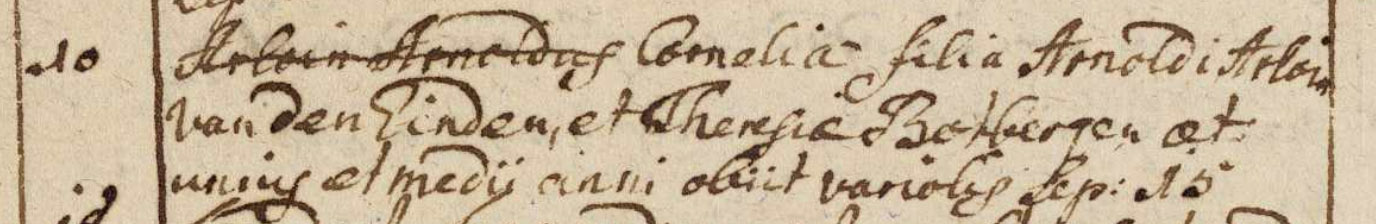 10 Arloin Arnoldus Cornelia filia Arnoldi Arloin
van den Einden, et Theresiæ Botbergen æt
unius et medij anni obiit variolis sep: 15